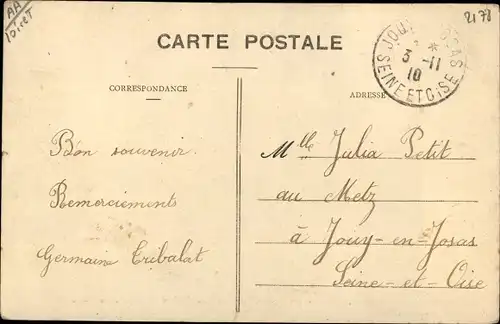 AA
Loiret
2178
CARTE POSTALE
JOUY-EN-JOSAS
3 -11
10
SEINE ET OISE
CORRESPONDANCE
ADRESSE
Bon souvenir
Remerciements
Germaine Tribalat
Mlle Julia Petit
au Metz
à Jouy-en-Josas
Seine-et-Oise